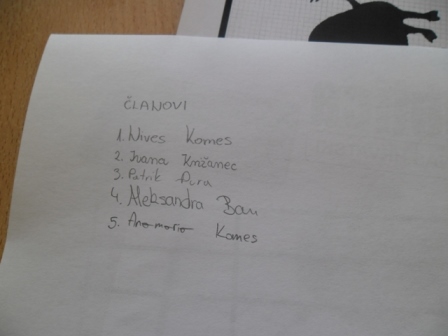 ČLANOVI
1. Nives Komes
2. Ivana Knžanec
3. Patrik
4. Aleksandra Ban
5. Anamaria Komes